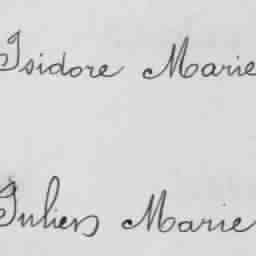 Isidore Marie
Julien Marie